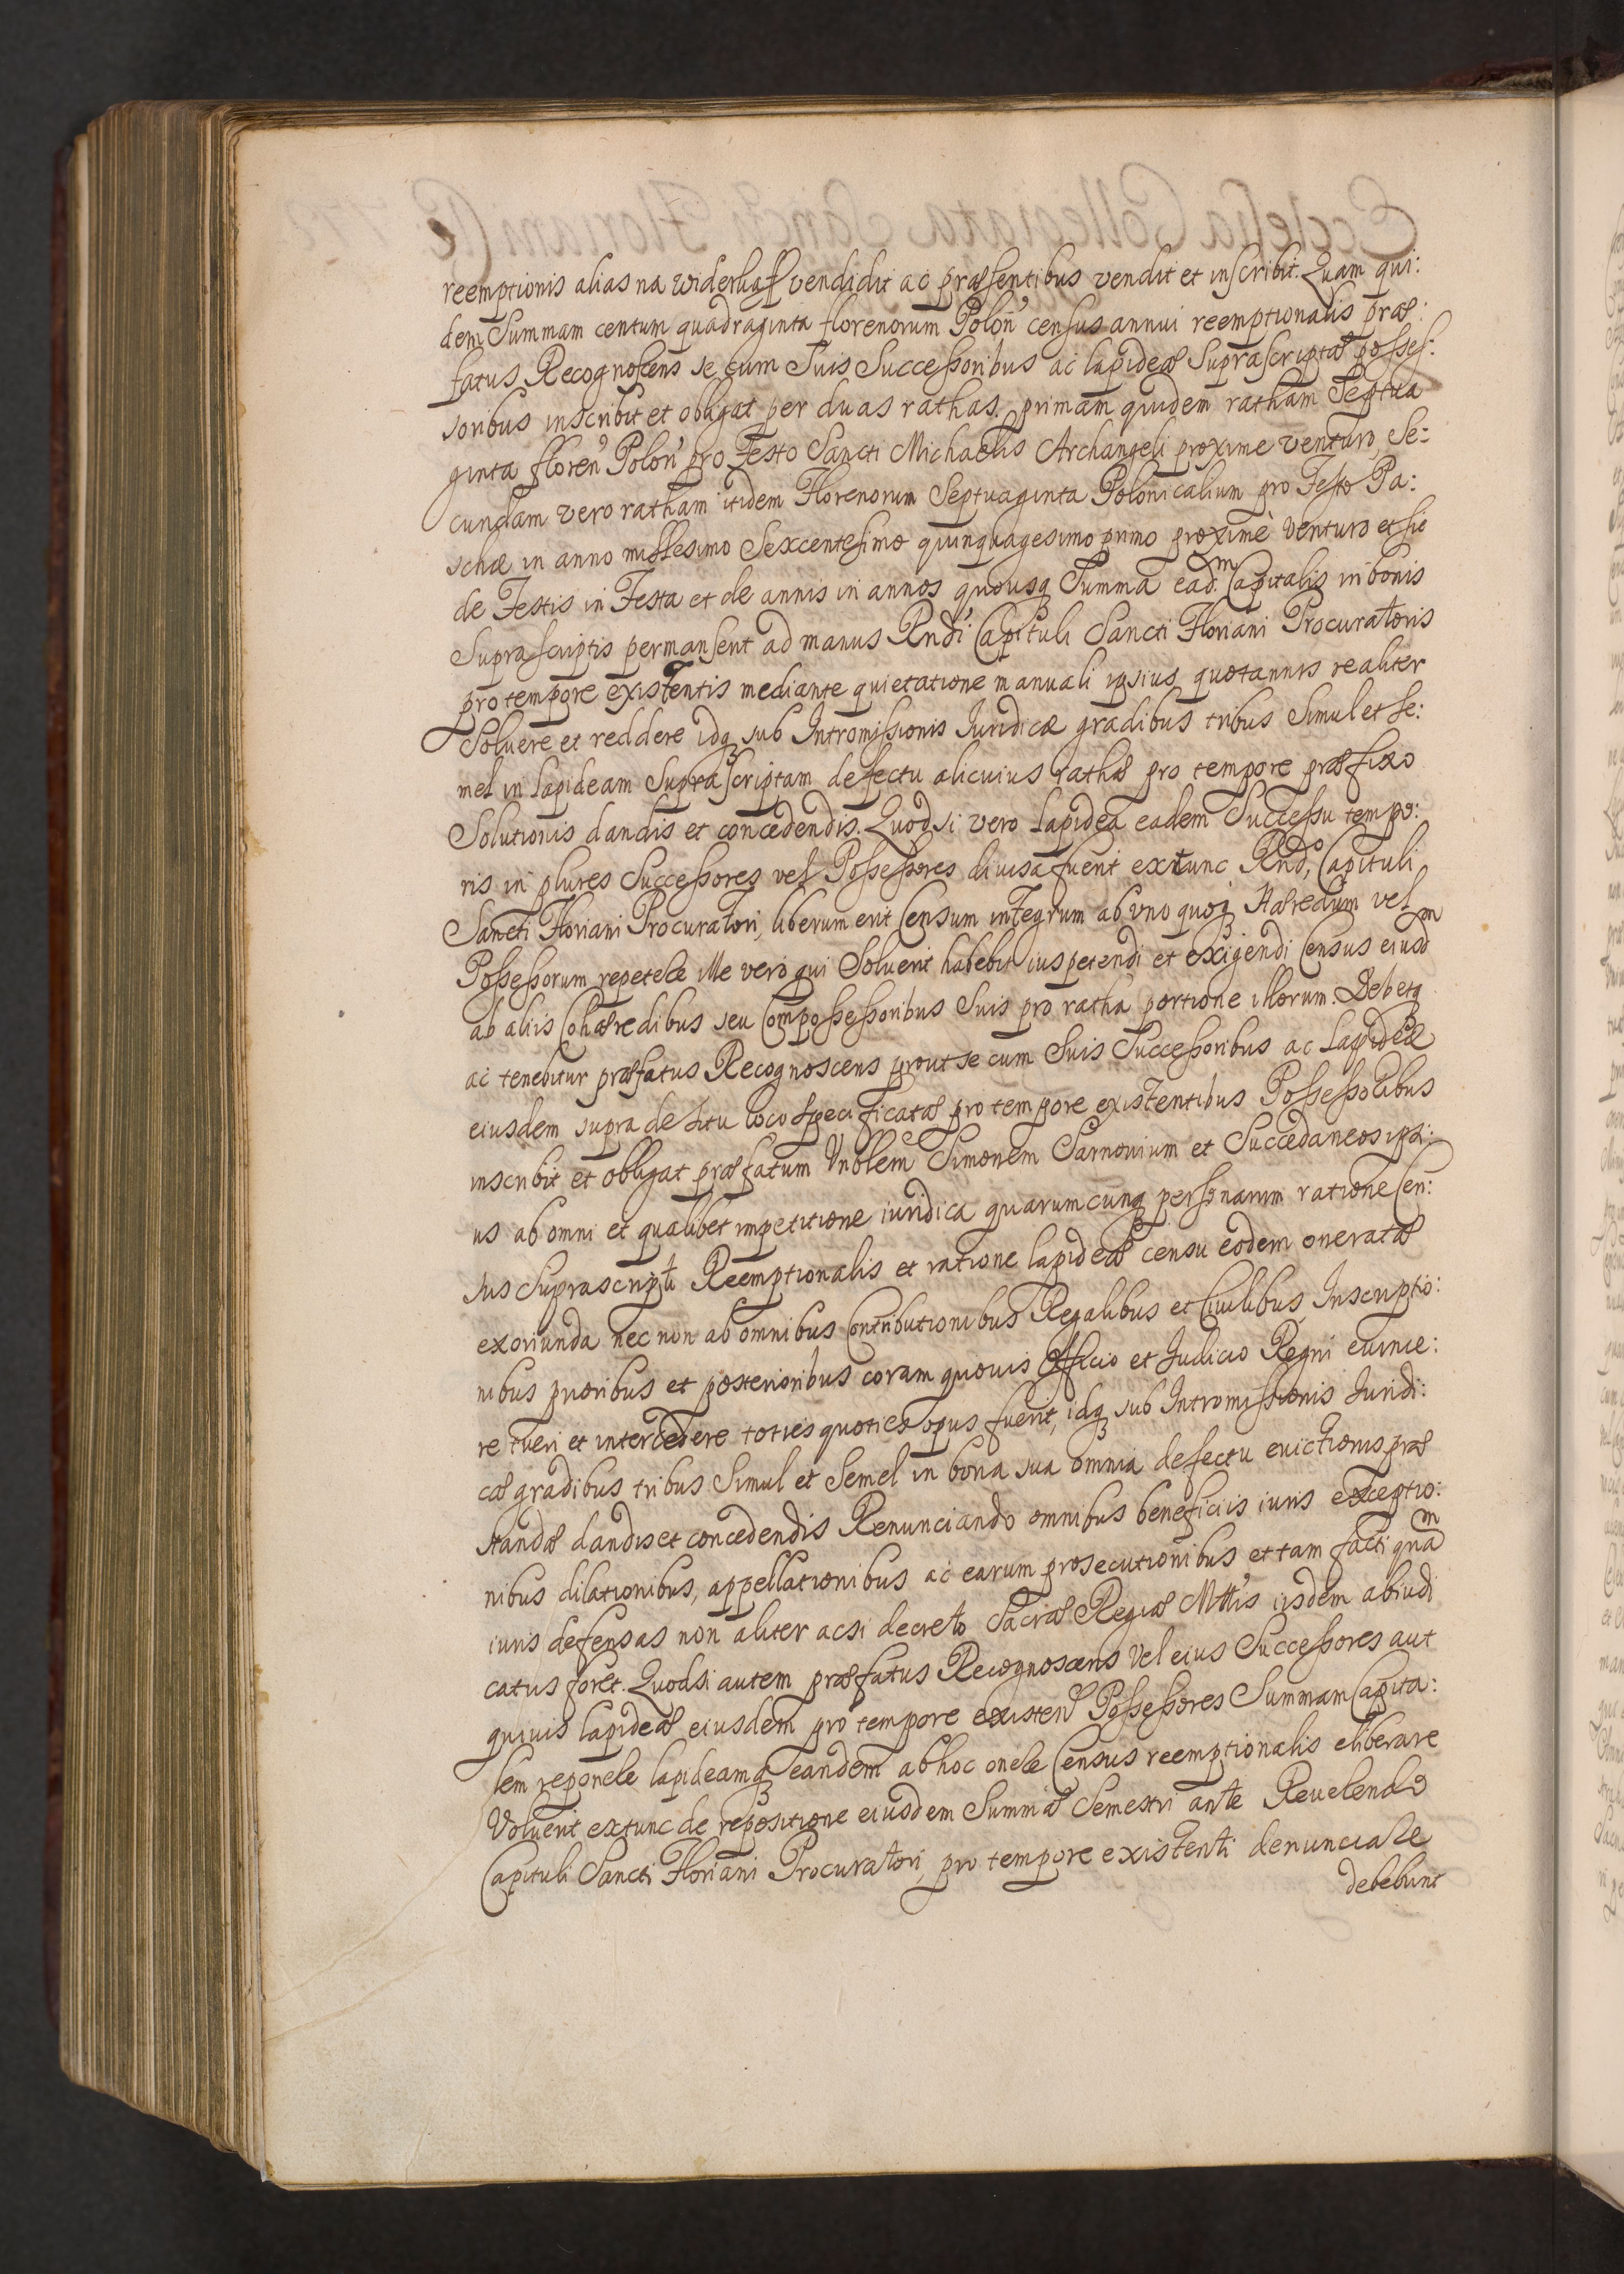 reemptionis alias na widerkaf vendidit ac præsentibus vendit et inscribit. Quam qui:
dem Summam centum quadraginta florenorum Polon' census annui reemptionalis præ:
fatus Recognoscens se cum Suis Successoribus ac lapideæ Suprascriptæ posses:
soribus inscribit et obligat per duas rathas. primam quidem ratham Septua
ginta floren' Polon' pro Festo Sancti Michaelis Archangeli proxime venturo, Se:
cundam vero ratham itidem Florenorum Septuaginta Polonicalium pro Festo Pa:
schæ in anno millesimo Sexcentesimo quinquagesimo primo proximè venturo et sic
de Festis in Festa et de annis in annos quousq Summa ead:m Capitalis in bonis
Suprascriptis permanserit ad manus Rndi Capituli Sancti Floriani Procuratoris
pro tempore existentis mediante quietatione manuali ipsius quotannis realiter
Soluere et reddere idq sub Intromissionis Iuridicæ gradibus tribus Simul et Se:
mel in lapideam Suprascriptam defectu alicuius rathæ pro tempore præfixo
Solutionis dandis et concedendis. Quod si vero lapidea eadem Successu tempo:
ris in plures Successores vel Possessores diuisa fuerit extunc Rndo, Capituli
Sancti Floriani Procuratori, liberum erit Censum integrum ab uno quoq Hæredum vel
Possessorum repetere ille vero qui Soluerit habebit ius petendi et exigendi Census eiusdm
ab aliis Cohæredibus seu Compossessoribus Suis pro ratha portione illorum. Debetq
ac tenebitur præfatus Recognoscens prout se cum Suis Successoribus ac Lapideæ
eiusdem supra de situ loco specificatæ pro tempore existentibus Possessoribus
inscribit et obligat præfatum Nobilem Simonem Sarnouium et Succedaneos ipsi:
us ab omni et qualibet impetitione iuridica quarumcunq personarum ratione Cen:
sus Suprascripti Reemptionalis et ratione lapideæ censu eodem oneratæ
exoriunda nec non ab omnibus Contributionibus Regalibus et Ciuilibus, Inscriptio:
nibus prioribus et posterioribus coram quouis Officio et Iudicio Regni euince:
re tueri et intercedere toties quoties opus fuerit, idq sub Intromissionis Iuridi:
cæ gradibus tribus Simul et Semel in bona sua omnia defectu euictionis præ
standæ dandis et concedendis Renunciando omnibus beneficiis iuris exceptio:
nibus dilationibus, appellationibus ac earum prosecutionibus et tam facti quam
iuris defensas non aliter acsi decreto Sacræ Regiæ Mttis iisdem abiudi
catus foret. Quodsi autem præfatus Recognoscens vel eius Successores aut
quiuis lapideæ eiusdem pro tempore existen Possessores Summam Capita:
lem reponere lapideamq eandem ab hoc onere Census reemptionalis eliberare
Voluerit extunc de repositione eiusdem Summæ Semestri ante Reuerendo
Capituli Sancti Floriani Procuratori, pro tempore existenti denunciare
debebunt